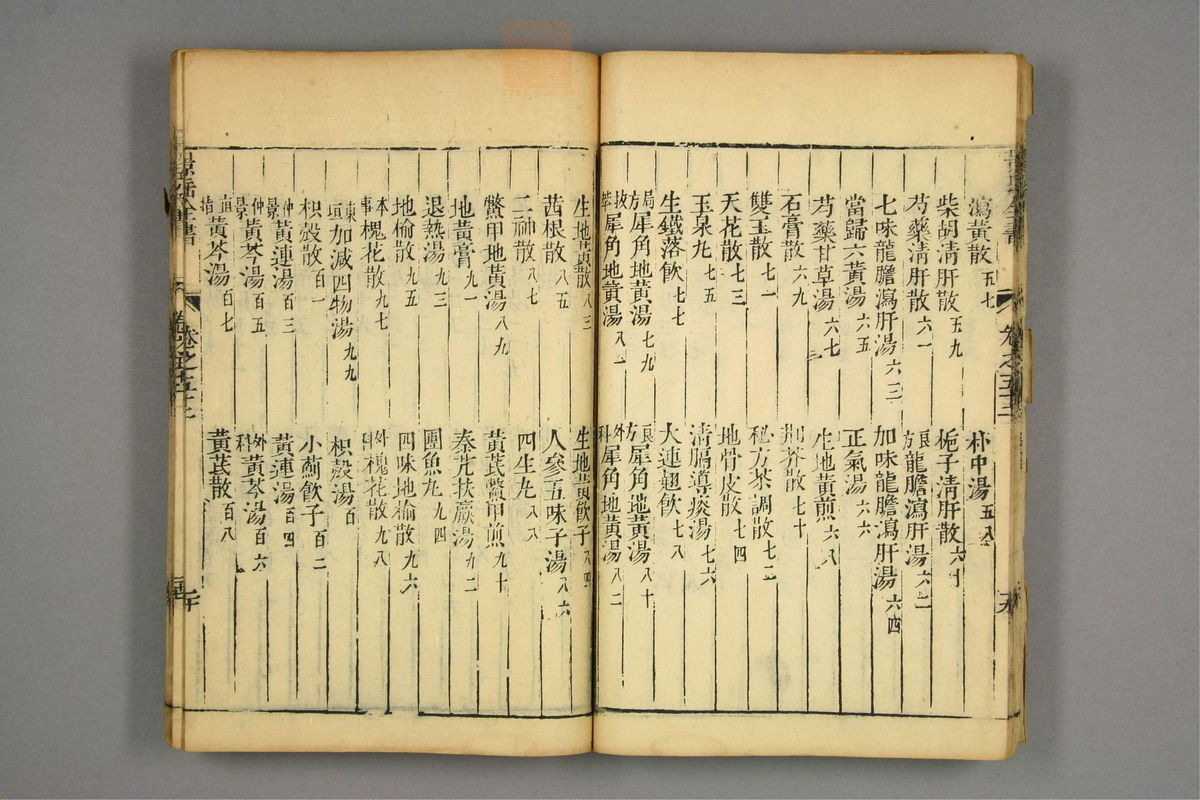 瀉黃散五七 朴中湯五八
柴胡清肝散五九 梔子清肝散六十
芍藥清肝散六一 良方龍膽瀉肝湯六二
七味龍膽瀉肝湯六三 加味龍膽瀉肝湯六四
當歸六黃湯六五 正氣湯六六
芍藥甘草湯六七 生地黃煎六八
石膏散六九 荊芥散七十
雙玉散七一 秘方茶調散七二
天花散七三 地骨皮散七四
玉泉丸七五 清膈導痰湯七六
生鐵落飲七七 大連翹飲七八
局方犀角地黃湯七九 良方犀角地黃湯八十
拔萃犀角地黃湯八一 外科犀角地黃湯八二
生地黃散八三 生地黃飲子八四
茜根散八五 人參五味子湯八六
二神散八七 四生丸八八
鱉甲地黃湯八九 黃芪鱉甲煎九十
地黃膏九一 秦艽扶羸湯九二
退熱湯九三 團魚丸九四
地榆散九五 四味地榆散九六
本事槐花散九七 外科槐花散九八
東垣加減四物湯九九 枳殼湯百
枳殼散百一 小薊飲子百二
仲景黃連湯百三 黃連湯百四
仲景黃芩湯百五 外科黃芩湯百六
宜指黃芩湯百七 黃芪散百八
景岳全書 卷之五十三